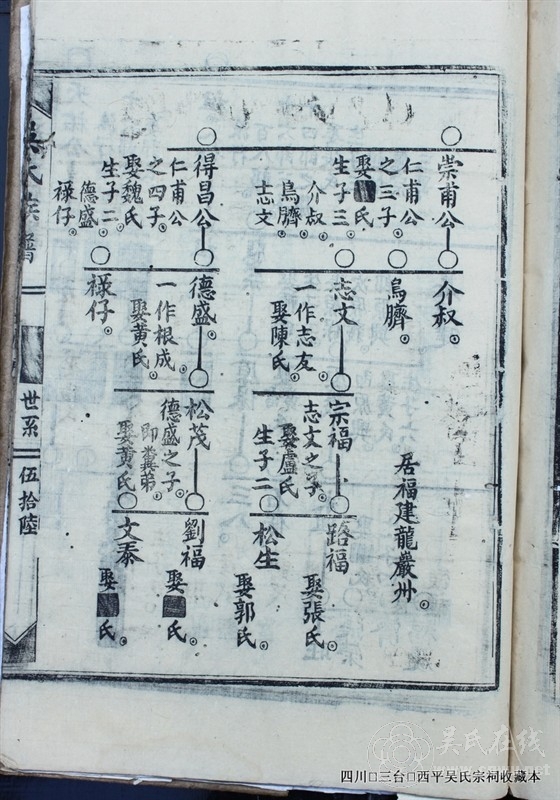 崇甫公
仁甫公
之三子
娶■氏
生子三
介叔
鳥臍
志文
得昌公
仁甫公
之四子
娶魏氏
生子二
德盛
祿仔
介叔
鳥臍
志文
一作志友
娶陳氏
德盛
一作根成
娶黃氏
祿仔
居福建龍巖州
宗福
志文之子
娶盧氏
生子二
松茂
德盛之子
即糞弟
娶黃氏
路福
娶張氏
松生
娶郭氏
劉福
娶■氏
文泰
娶■氏
吳氏族譜
世系
伍拾陸
吴氏在线
四川□三台□西平吴氏宗祠收藏本